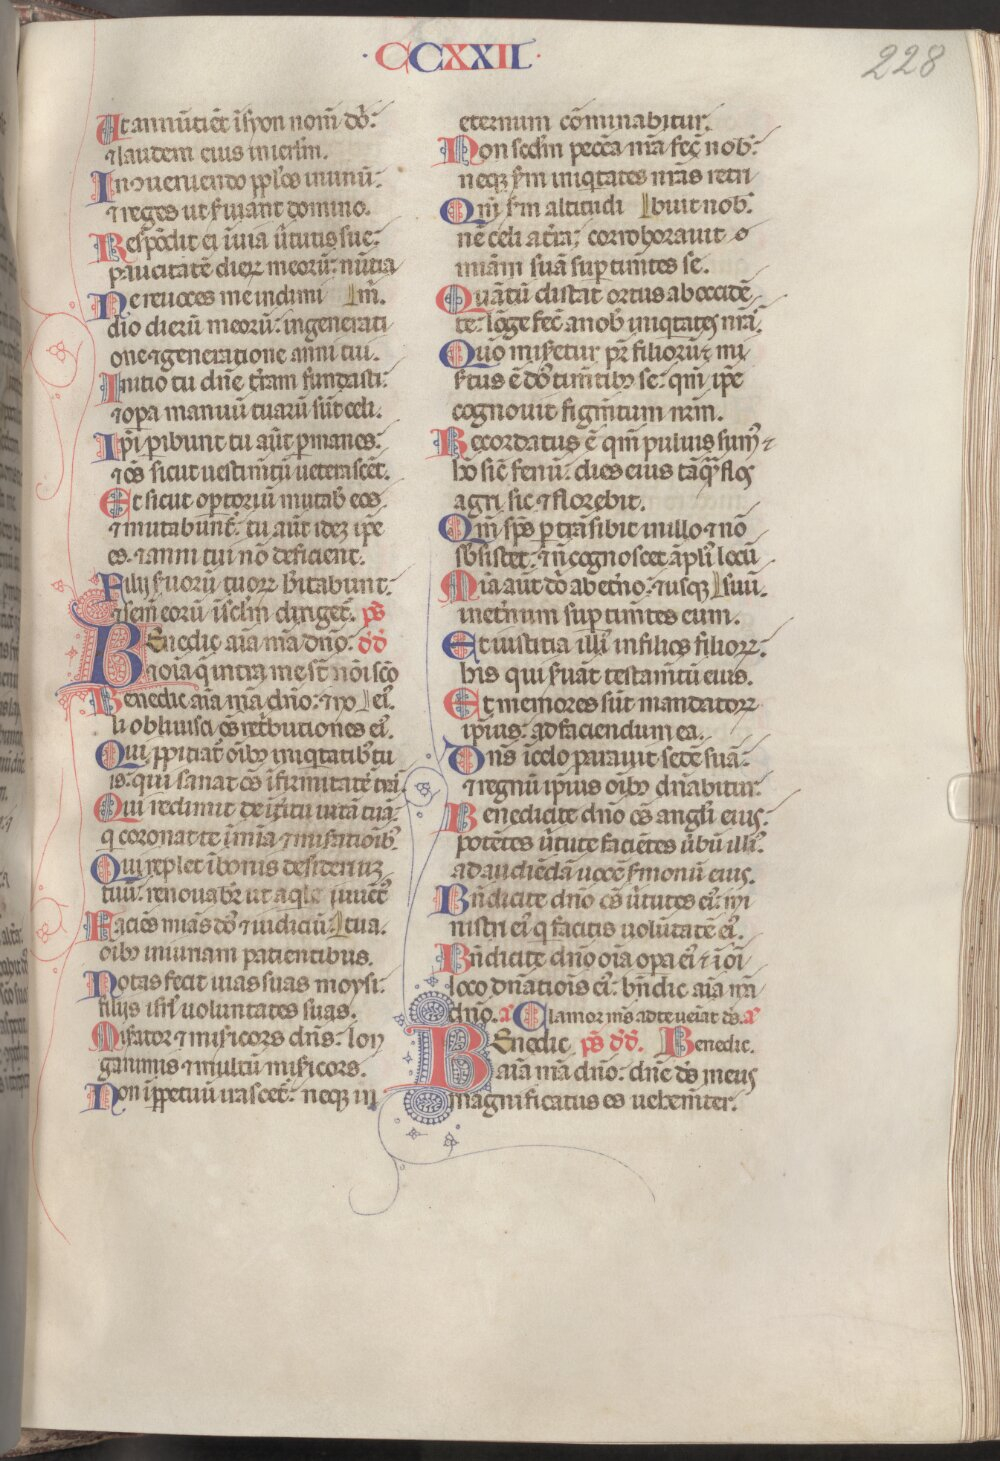 ·CCXXII·
228
Ut annūtiēt ī syon nomē dn̄i:
⁊ laudem eius in ierl̄m.
In 9ueniendo pp̄los in unū:
⁊ reges ut s̄uiant domino.
Respōdit ei ī uia ūtutis sue:
paucitatē dierꝝ meorū: nūtia
Ne reuoces me in dimi m̄.
dio dierū meorū: in generati
one ⁊ generatione anni tui.
Initio tu dn̄e t̄ram fundasti:
⁊ opa manuū tuarū sūt celi.
Ipi pibunt tu aūt pmanes:
⁊ oēs sicut uestim̄tū ueterascēt.
Et sicut optoriū mutab eos
⁊ mutabunt̄: tu aūt idez ip̄e
es. ⁊ anni tui nō deficient.
Filij s̄uorū tuorꝝ h̄itabunt:
⁊ sem̄ eorū ī scl̄m diriget̄. ps̄
Benedic aīa mā dn̄o: dd̄
⁊ oīa q̄ intra me st̄ nōi sc̄o
Benedic aīa mēa dn̄o: ⁊ no ei⁹.
li obliuisci oēs ret̄butiones ei⁹.
Qui ppitiat̄ oībꝫ iniqtatibꝫ tu
is: qui sanat oēs īfirmitatē tuā
Qui redimit de īt̄itu uitā tuā:
q coronat te ī mīa ⁊ misatiōibꝫ
Qui replet ī bonis desideriuꝫ
tuū: renouabr̄ ut aqle iuuēt⁹
Faciēs mīas dn̄s ⁊ iudiciū: tua.
oībꝫ iniuriam patientibus.
Notas fecit uias suas moysi:
filijs isrl̄ uoluntates suas.
Misator ⁊ misicors dn̄s: lon
ganimis ⁊ multū misicors.
Non ī ppetuū irascet̄: neqꝫ in
eternum cōminabitur.
Non scd̄m pecc̄a nr̄a fec̄ nob̄:
neqꝫ s̄m iniqtates nr̄as retri
Qm̄ s̄m altitudi buit nob̄.
nē celi a t̄ra: corroborauit
mīam suā sup tim̄tes se.
Quātū distat ortus ab occidē
te: lōge fec̄ a nob̄ iniqtates nr̄as.
Quō misetur pr̄ filiorū: mi
s̄tus ē dn̄s tim̄tibꝫ se: qm̄ ip̄e
cognouit figm̄tum nr̄m.
Recordatus ē qm̄ puluis sum⁹
hō sic̄ fenū: dies eius tāq̄ flos
agri sic ⁊ florebit.
Qm̄ sp̄s p trāsibit in illo ⁊ nō
sbsistet: ⁊ nō cognoscet āpli⁹ locū
Mīa aūt dn̄i ab et̄no: ⁊ usqꝫ suū.
in et̄num sup tim̄tes eum.
Et iustitia illi⁹ in filios filiorꝝ:
his qui s̄uāt testam̄tū eius.
Et memores sūt mandatorꝝ
ipius: ad faciendum ea.
Dn̄s ī celo parauit sedē suā:
⁊ regnū ipius oībꝫ dn̄abitur.
Benedicite dn̄o oēs angl̄i eius:
potētes ūtute faciētes ūbū illi⁹.
ad audiēdā uocē s̄monū eius.
Bn̄dicite dn̄o oēs ūtutes ei⁹: mi
nistri ei⁹ q facitis uolūtatē ei⁹.
Bn̄dicite dn̄o oīa opa ei⁹: ī oī
loco dn̄atiōis ei⁹: bn̄dic aīa mā
dn̄o. a Clamor m̄s ad te ueiat ds̄. a
Benedic ps̄ dd̄. Benedic.
aīa mā dn̄o: dn̄e ds̄ meus
magnificatus es uehem̄ter.